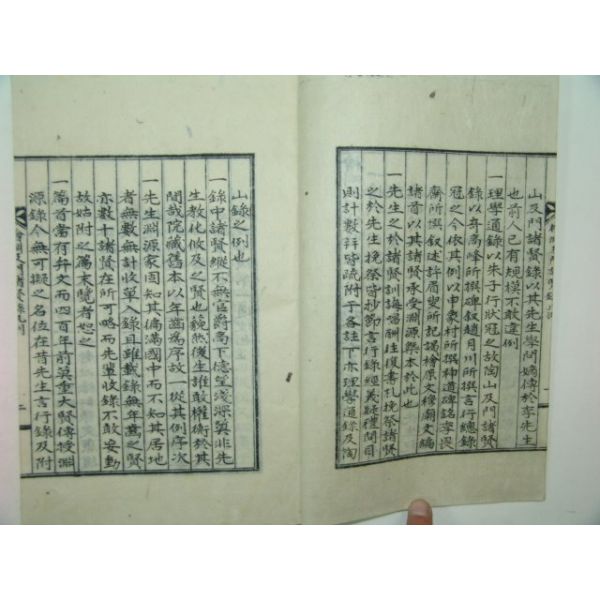 山及門諸賢錄以其先生學問嫡傳於李先生
也前人已有規模不敢違例
一理學通錄以朱子行狀冠之故陶山及門諸賢
錄以奇高峰所撰碑叙趙月川所撰言行總錄
冠之今依其例以申象村所撰神道碑銘李畏
齋所撰叙述許眉叟所記謁檜原文穆廟文編
諸首以其諸賢承受淵源槩本於此也
一先生之於諸賢訓誨酬往復書札挽祭諸賢
之於先生挽祭皆抄節言行錄經義疑禮問目
則計數拜皆疏附于各註下亦理學通錄及陶
山錄之例也
一錄中諸賢縱不無官爵高下德望淺深莫非先
生教化攸及之賢也藐然後生誰敢權衡於其
間哉院藏舊本以年齒爲序故一從其例序次
一先生淵源家固知其徧滿國中而不知其居地
者無數無計收單入錄且雖載錄無年歲之賢
亦數十諸賢在所可略而先輩收錄不敢妄動
故姑附之篇末覽者恕之
一篇首當有弁文而四百年前莫重大賢傳授淵
源錄今無可擬之名位在昔先生言行錄及附